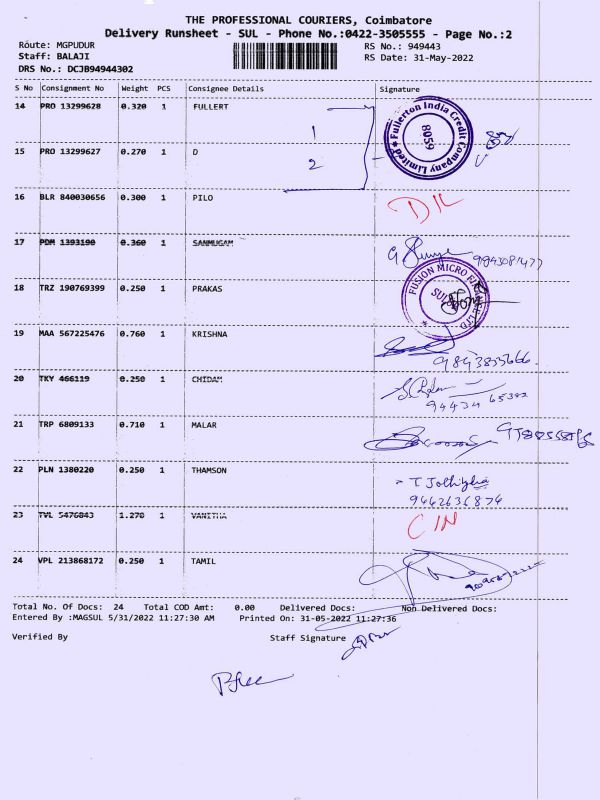 THE PROFESSIONAL COURIERS, Coimbatore
Delivery Runsheet - SUL - Phone No.:0422-3505555 - Page No.:2
Route: MGPUDUR RS No.: 949443
Staff: BALAJI RS Date: 31-May-2022
DRS No.: DCJB94944302
S No Consignment No Weight PCS Consignee Details Signature
14 PRO 13299628 0.320 1 FULLERT
Fullerton India Credit Company Limited
8059
1
15 PRO 13299627 0.270 1 D
2
16 BLR 840030656 0.300 1 PILO
DIL
17 PDM 1393190 0.360 1 SANMUGAM
18 TRZ 190769399 0.250 1 PRAKAS
FUSION MICRO
19 MAA 567225476 0.760 1 KRISHNA
20 TKY 466119 0.250 1 CHIDAM
21 TRP 6809133 0.710 1 MALAR
22 PLN 1380220 0.250 1 THAMSON
9442636874
23 TVL 5476843 1.270 1 VANITHA
CIN
24 VPL 213868172 0.250 1 TAMIL
Total No. Of Docs: 24 Total COD Amt: 0.00 Delivered Docs: Non Delivered Docs:
Entered By :MAGSUL 5/31/2022 11:27:30 AM Printed On: 31-05-2022 11:27:36
Verified By Staff Signature